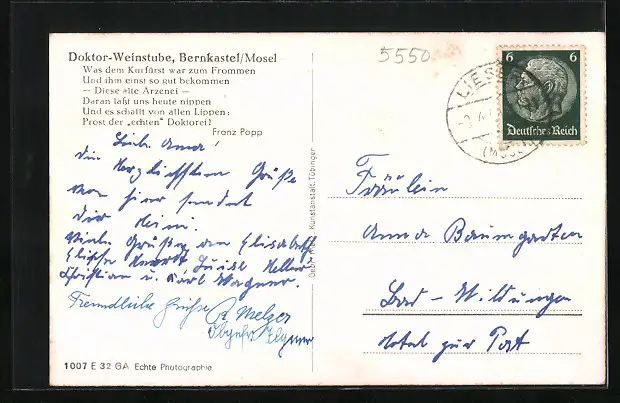 Doktor-Weinstube, Bernkastel/Mosel
Was dem Kurfürst war zum Frommen
Und ihm einst so gut bekommen
— Diese alte Arzenei —
Daran laßt uns heute nippen
Und es schallt von allen Lippen:
Prost der „echten" Doktorei!
Franz Popp
Lieb. Anna!
die herzlichsten Grüße
von hier sendet
dir Heini.
Viele Grüße an Elisabeth
Luise Keller
Christian u. Karl Wagner.
Freundliche Grüsse
Melzer
1007 E 32 GA Echte Photographie
Kunstanstalt, Tübingen
5550
6 6
Deutsches Reich
LIESER
(MOSEL)
Fräulein
Anna Baumgarten
Bad-Wildungen
Hotel zur Post